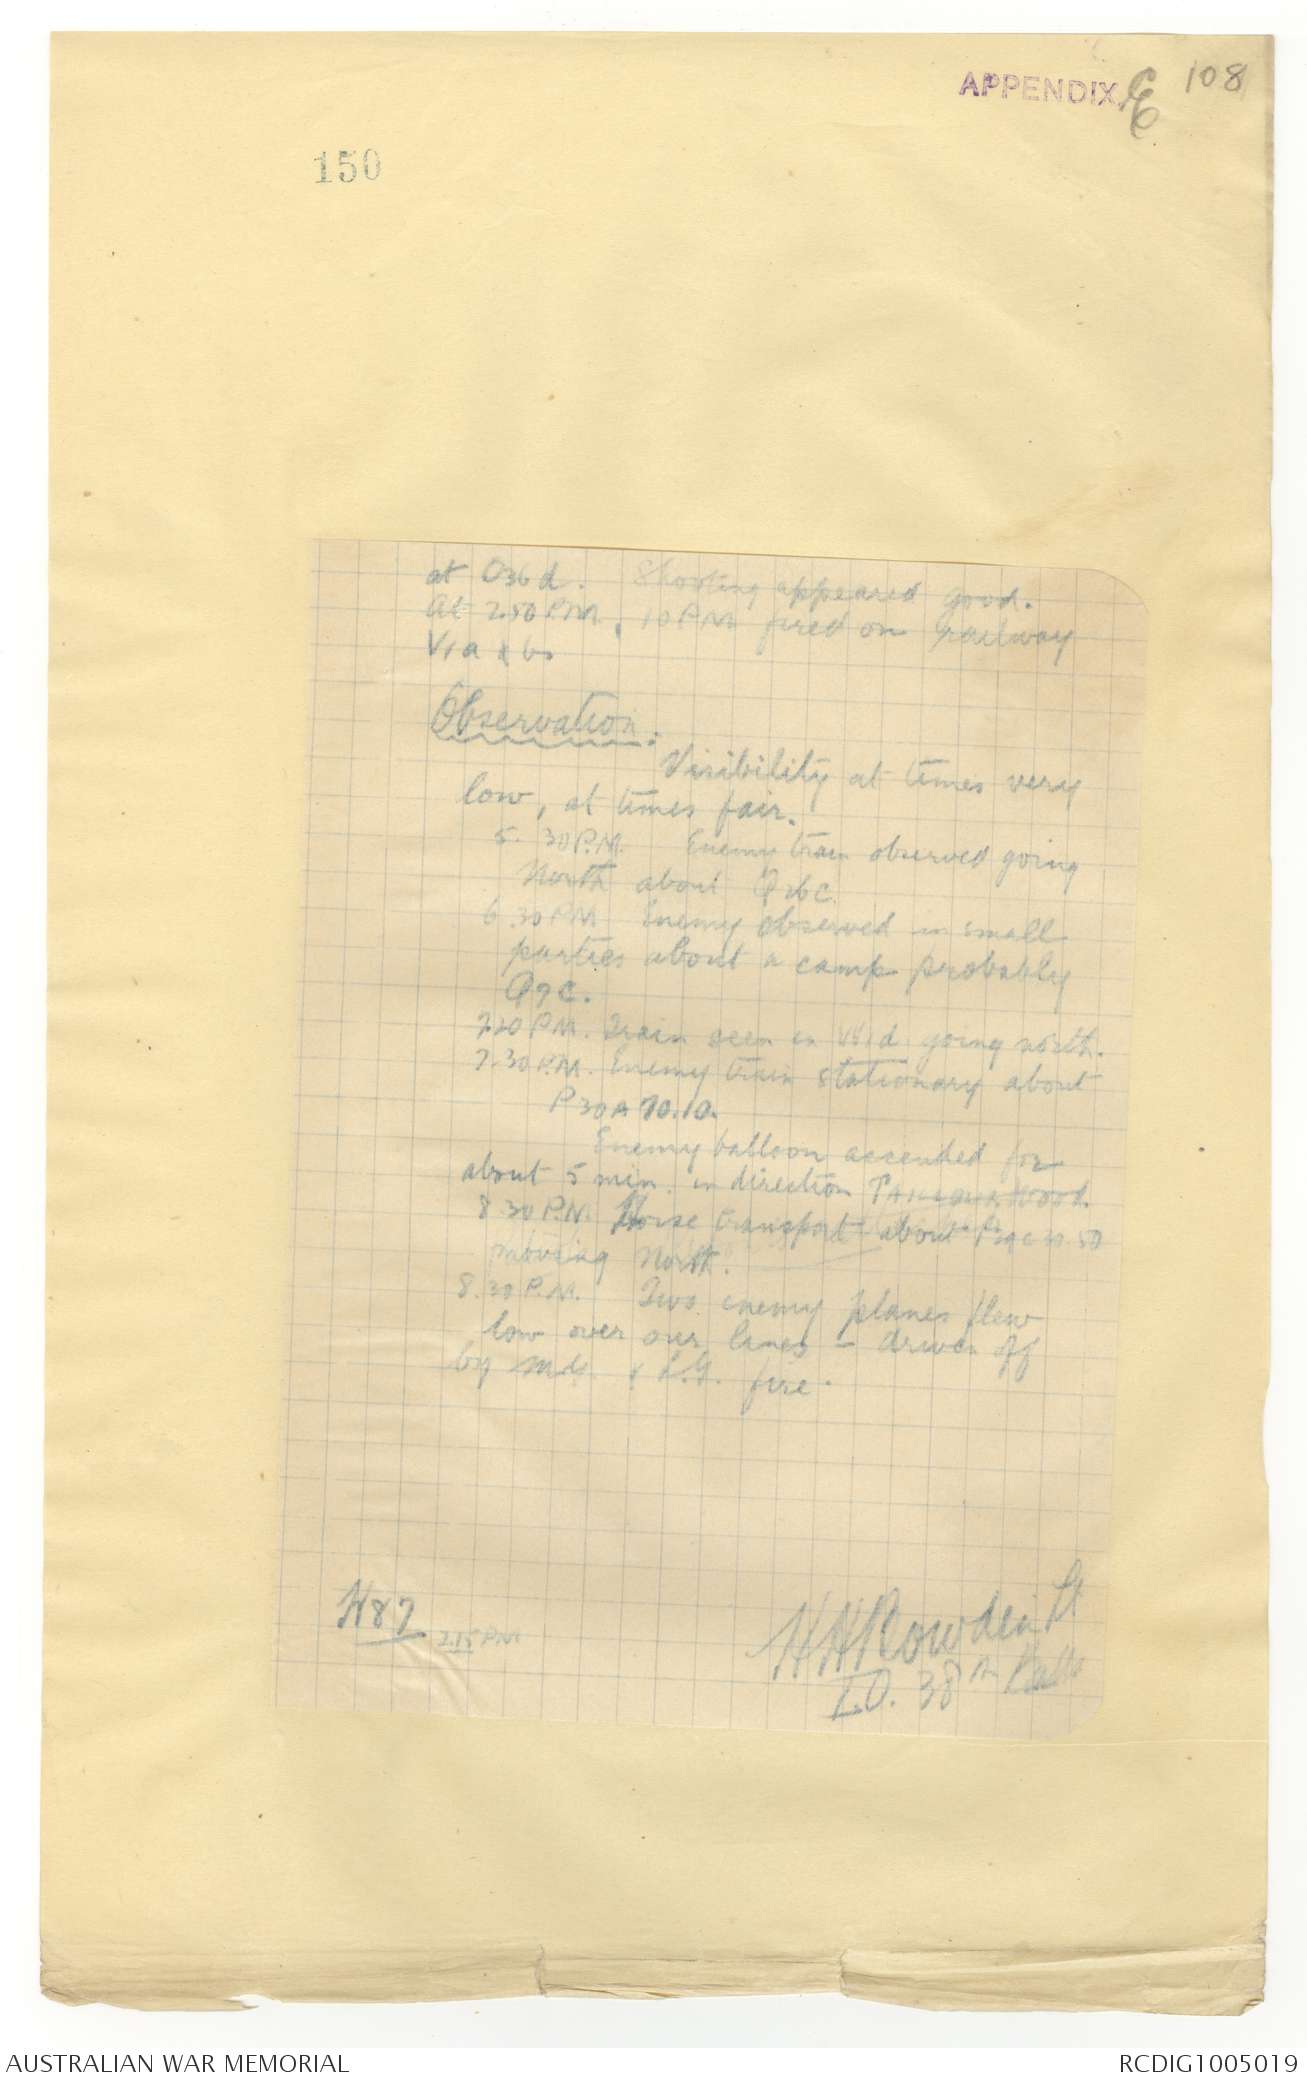 APPENDIX E 108
150
at O36d. Shooting appeared good.
At 2.50 P.M., 10 PM fired on railway
V1a & b.
Observation.
Visibility at times very
low, at times fair.
5.30 P.M. Enemy train observed going
North about Q26C.
6.30 PM Enemy observed in small
parties about a camp probably
Q9C.
7.20 P.M. Train seen in W1d going north.
7.30 P.M. Enemy train stationary about
P30A 70.10.
Enemy balloon ascended for
about 5 min. in direction Wood.
8.30 P.M. Horse transport about 30.50
moving North.
8.30 P.M. Two enemy planes flew
low over our lines – driven off
by M.G. & L.G. fire.
H87 2.15 PM
HHRowden Lt
I.O. 38th Battn
AUSTRALIAN WAR MEMORIAL
RCDIG1005019